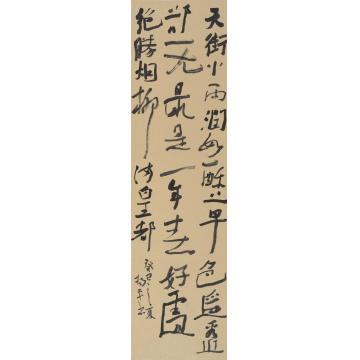 天街小雨潤如酥草色遥看近
却无最是一年春好處
絕勝烟柳满皇都
癸巳之夏